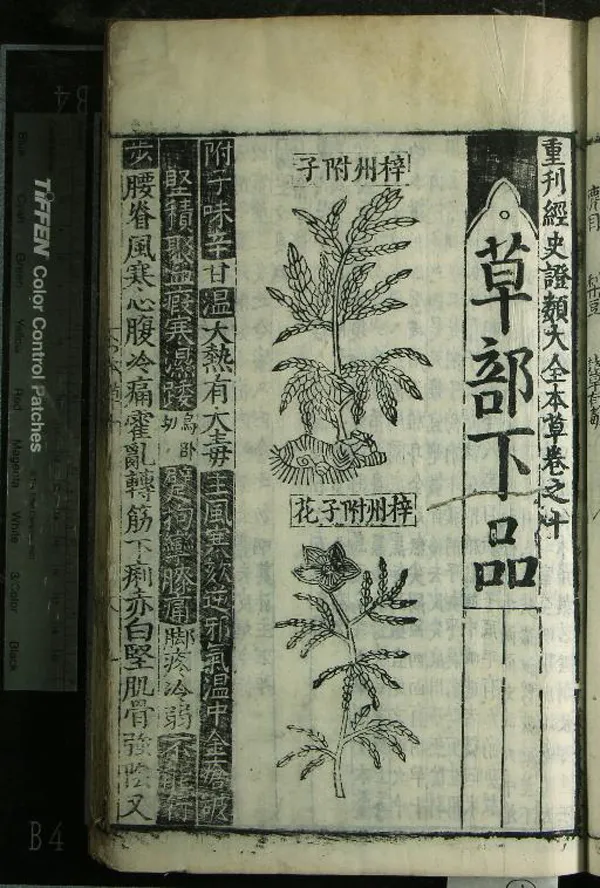 重刊經史證類大全本草卷之十
草部下品
梓州附子
梓州附子花
附子味辛甘溫大熱有大毒主風寒欬逆邪氣溫中金瘡破
堅積聚血瘕寒濕踒烏臥切躄拘攣膝痛脚疼冷弱不能行
步腰脊風寒心腹冷痛霍亂轉筋下痢赤白堅肌骨強陰又
TIFFEN Color Control Patches
Blue
Green
Yellow
Red
Magenta
White
3-Color
Black
B4
B4